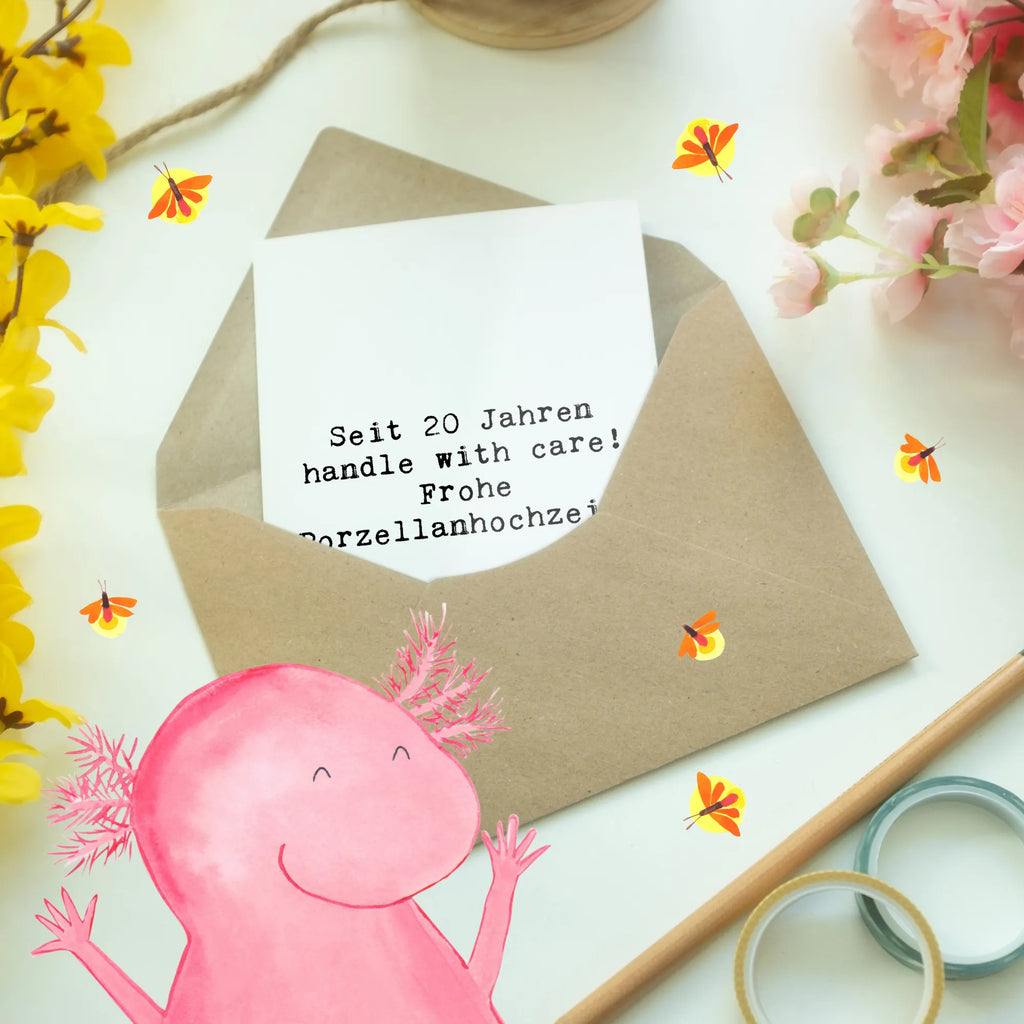 Seit 20 Jahren
handle with care!
Frohe
Porzellanhochzei